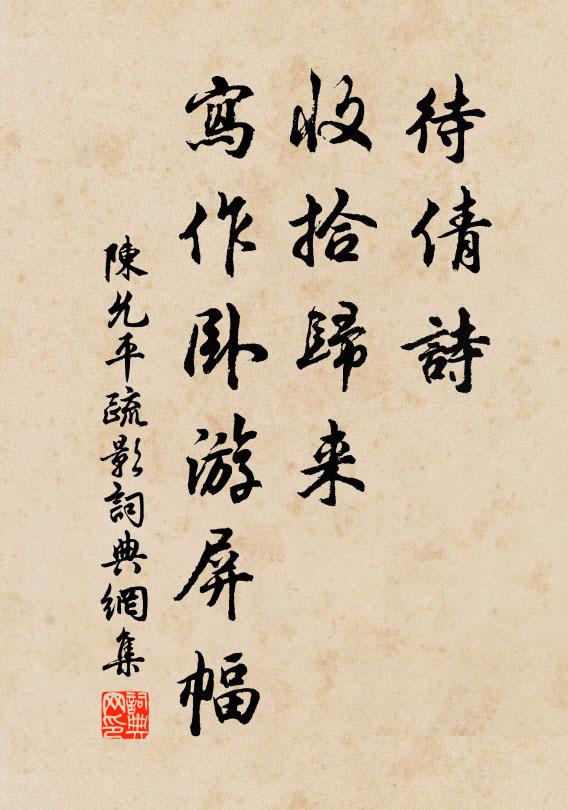 待倩詩
收拾歸来
寫作卧游屏幅
陳允平疏影詞典網集
詞典网印